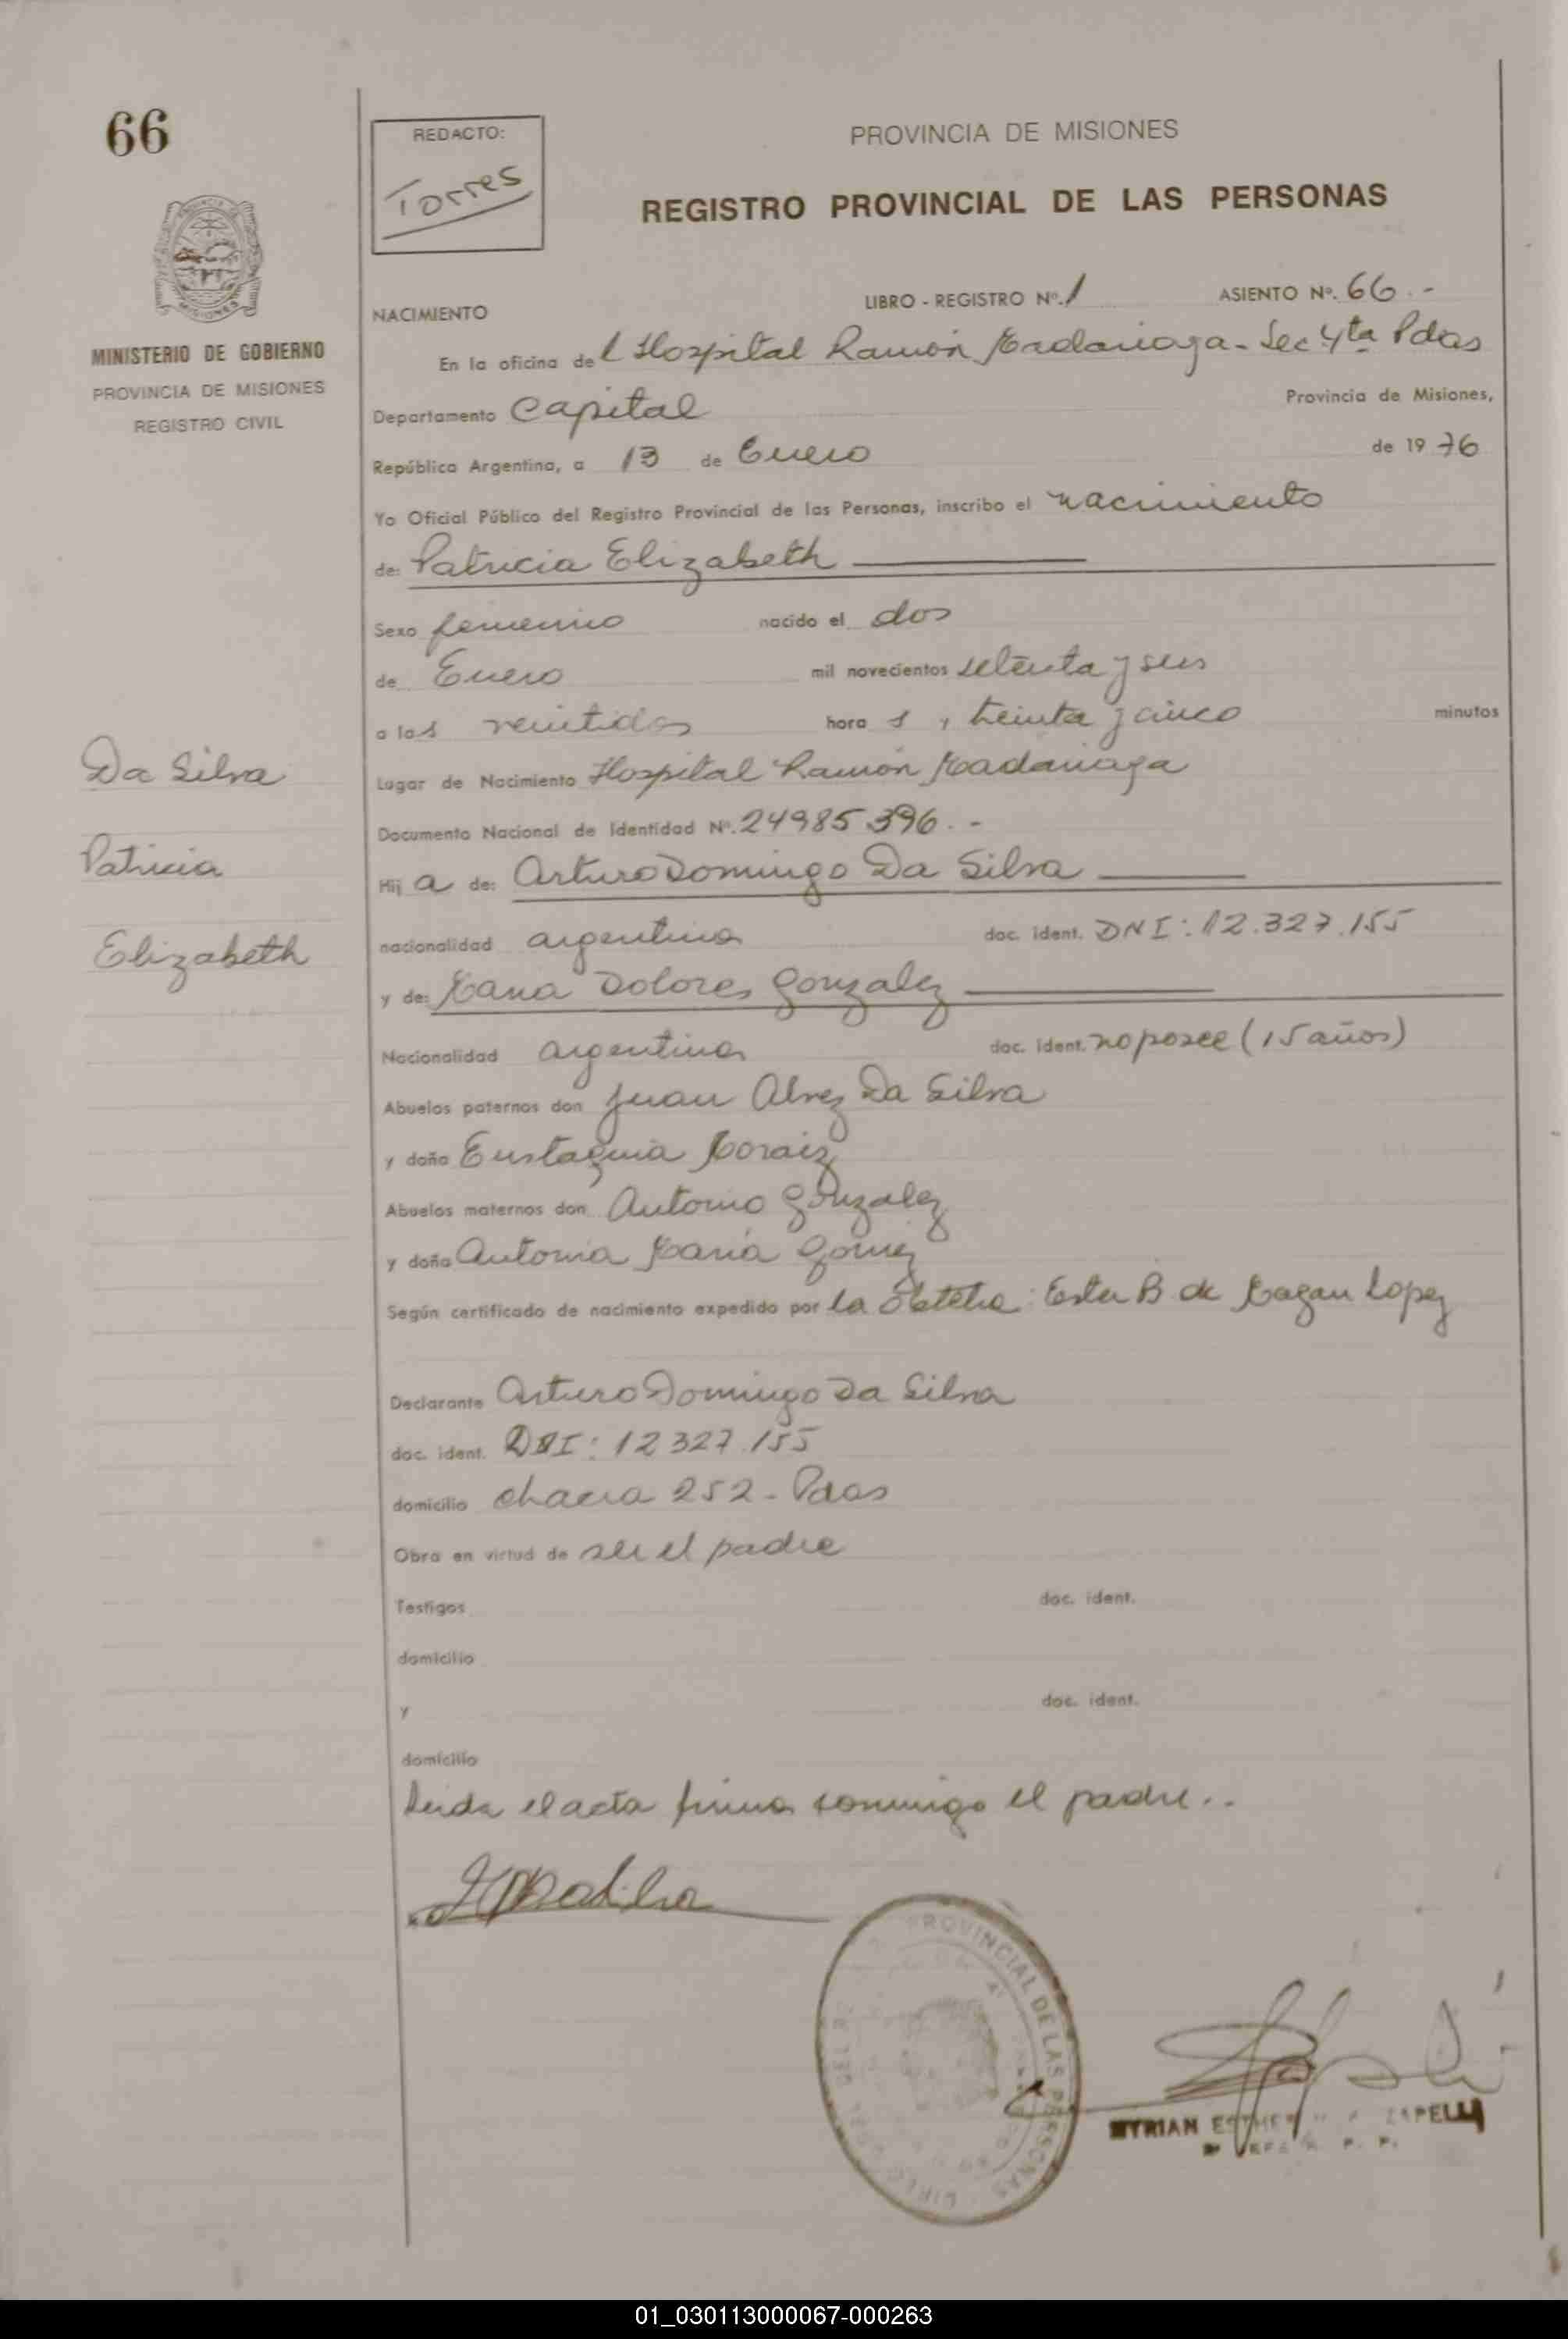 66
REDACTO:
Torres
PROVINCIA DE MISIONES
REGISTRO PROVINCIAL DE LAS PERSONAS
MINISTERIO DE GOBIERNO
PROVINCIA DE MISIONES
REGISTRO CIVIL
NACIMIENTO LIBRO - REGISTRO Nº. 1 ASIENTO Nº. 66.-
En la oficina del Hospital Ramón Madariaga - Sec 4ta Pdas
Departamento Capital Provincia de Misiones,
República Argentina, a 13 de Enero de 1976
Yo Oficial Público del Registro Provincial de las Personas, inscribo el nacimiento
de: Patricia Elizabeth
Sexo femenino nacido el dos
de Enero mil novecientos setenta y seis
a las veintidos hora s, treinta y cinco minutos
Da Silva
Patricia
Elizabeth
Lugar de Nacimiento Hospital Ramón Madariaga
Documento Nacional de Identidad Nº. 24985396.-
Hija de: Arturo Domingo Da Silva
nacionalidad argentina doc. ident. DNI: 12.327.155
y de: Maria Dolores Gonzalez
Nacionalidad argentina doc. ident. no posee (15 años)
Abuelos paternos don Juan Alvez Da Silva
y doña Eustaquia Moraiz
Abuelos maternos don Antonio Gonzalez
y doña Antonia Maria Gomez
Según certificado de nacimiento expedido por la Obstetra: Ester B de Lopez
Declarante Arturo Domingo Da Silva
doc. ident. DNI: 12327.155
domicilio chacra 252 - Pdas
Obra en virtud de ser el padre
Testigos doc. ident.
domicilio
y doc. ident.
domicilio
Leida el acta firma conmigo el padre..
PROVINCIAL DE LAS PERSONAS
MYRIAN ESTHER ZAPELLI
01_030113000067-000263